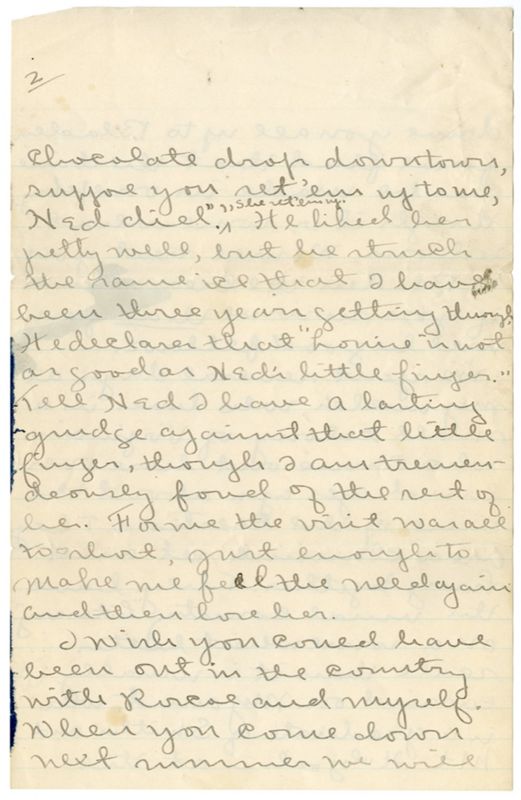 2
Chocolate drop downtown,
suppose you set 'em up to me,
Ned did." "She set 'em up.
He liked her
pretty well, but he struck
the same ice that I have
been three years getting through
He declares that "homie is not
as good as Ned's little finger."
Tell Ned I have a lasting
grudge against that little
finger, though I am tremen-
dously fond of the rest of
her. For me the visit was all
too short, just enough to
make me feel the need again
and then lose her.
I wish you could have
been out in the country
with Roscoe and myself.
When you come down
next summer we will